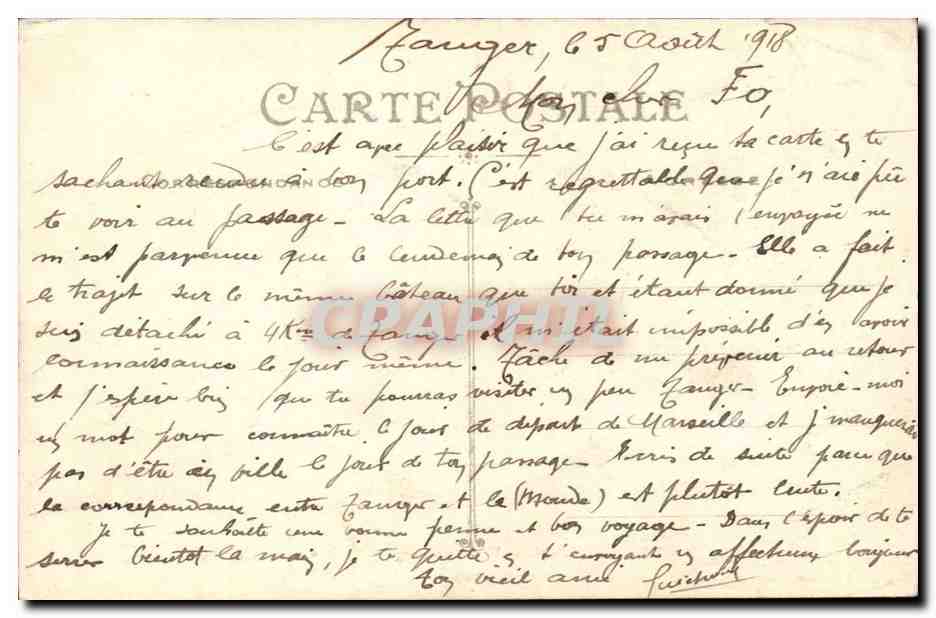 Tanger, le 5 Août 1918
CARTE POSTALE
Mon cher Fo,
C'est avec plaisir que j'ai reçu ta carte en te
CORRESPONDANCE
sachant rendu à bon port. C'est regrettable que je n'aie pu
te voir au passage - La lettre que tu m'avais envoyée ne
m'est parvenue que le lendemain de ton passage. Elle a fait
le trajet sur le même bâteau que toi et étant donné que je
suis détaché à 4 Km de Tanger il m'était impossible d'en avoir
CPAPHIL
connaissance le jour même. Tâche de me prévenir au retour
et j'espère bien que tu pourras visiter un peu Tanger - Envoie-moi
un mot pour connaître le jour de départ de Marseille et j manquerai
pas d'être en ville le jour de ton passage - Ecris de suite parce que
la correspondance entre Tanger et le (Monde) est plutôt lente.
Je te souhaite une bonne et bon voyage - Dans l'espoir de te
serrer bientôt la main, je te quitte en t'envoyant un affectueux bonjour
Ton vieil ami